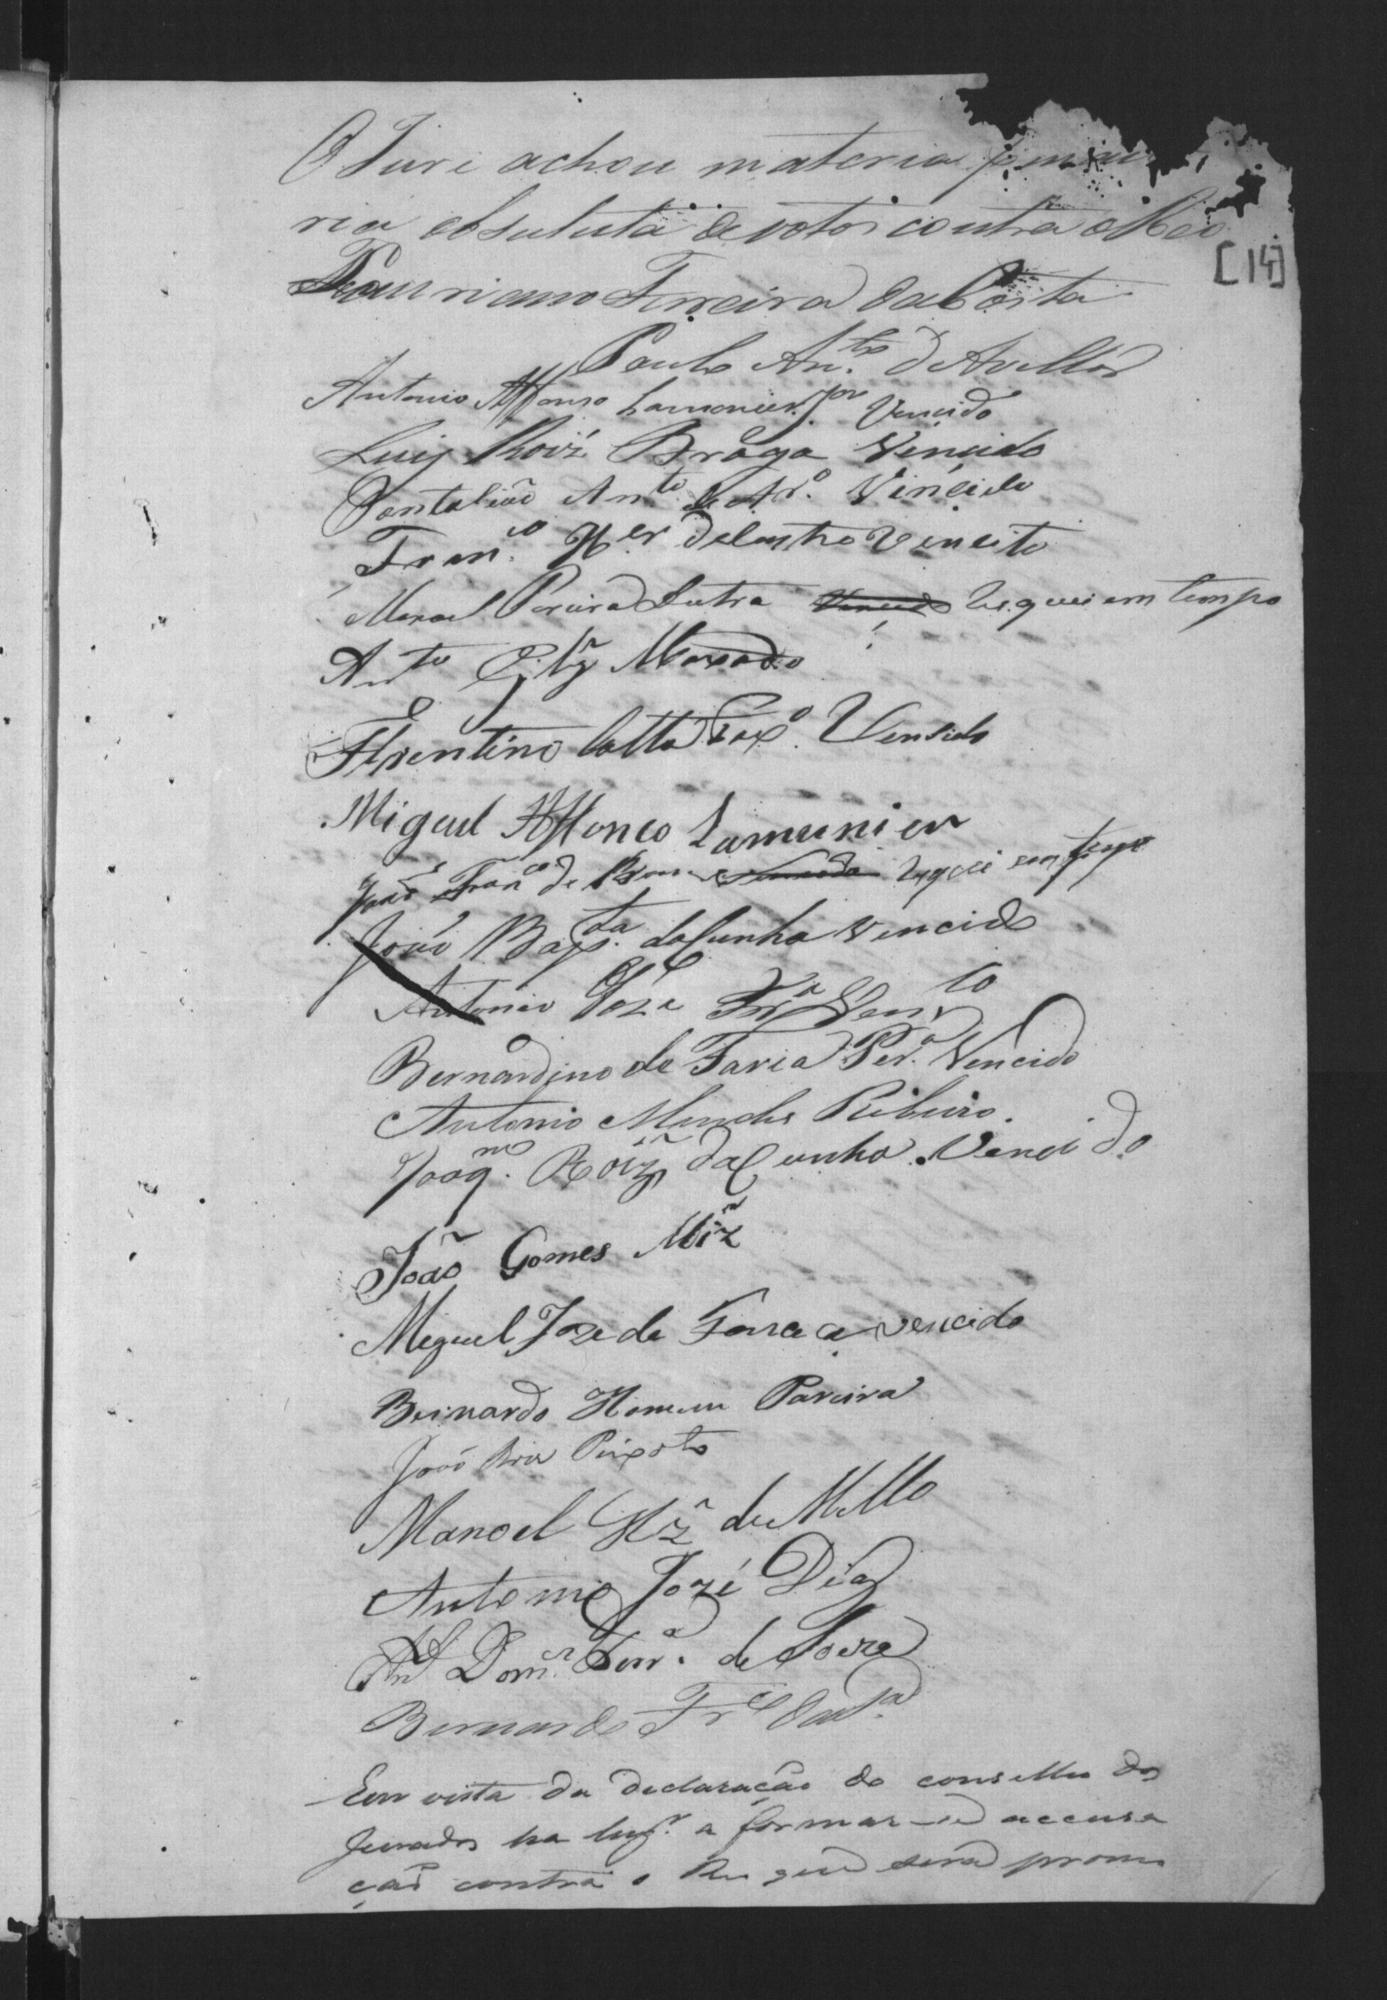 O Juri achou materia
ria absuluta de votos contra o Reo
[14]
Tauriano Ferreira da Costa
Paulo An.to d'Avellar
Antonio Affonso Lamonier Jor Vencido
Luiz Roiz Braga Vencido
Pantalião Anto de Ar.o Vincido
Fran.co X.er de Castro Vencito
Manoel Pereira Dutra Vencido Risquei em tempo
Anto Glz Maxado
Florentino Cotta Pax.o Vensido
Miguel Affonco Lamunier
João Fran.co de Vencido risquei em tempo
João Bap.ta da Cunha vencido
Antonio Joze Fra Venc.to
Bernardino de Faria Per.a Vencido
Antonio Mendes Ribeiro.
Joaq.m Roiz da Cunha. Vencido
João Gomes Miz
Miguel Joze da Fonseca vencido
Bernardo Homem Pareira
João Peixoto
Manoel Glz de Mello
Antonio Jozé Diaz
Dom.es Ferr.a de Souza
Bernardo Fr
Em vista da declaração do conselho dos
Jurados ha lugr. a formar-se accusa
ção contra o Reo que será prom